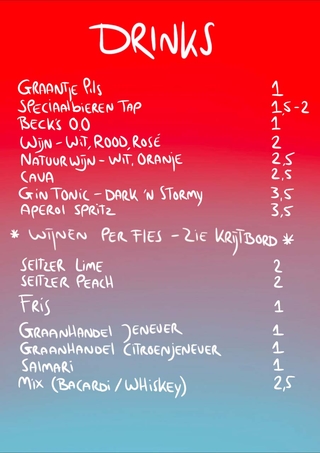 DRINKS
GRAANTJE PILS 1
SPECIAALBIEREN TAP 1,5-2
BECK'S 0.0 1
WIJN - WIT, ROOD, ROSÉ 2
NATUURWIJN - WIT, ORANJE 2,5
CAVA 2,5
GIN TONIC - DARK 'N STORMY 3,5
APEROL SPRITZ 3,5
* WIJNEN PER FLES - ZIE KRIJTBORD *
SELTZER LIME 2
SELTZER PEACH 2
FRIS 1
GRAANHANDEL JENEVER 1
GRAANHANDEL CITROENJENEVER 1
SALMARI 1
MIX (BACARDI / WHISKEY) 2,5